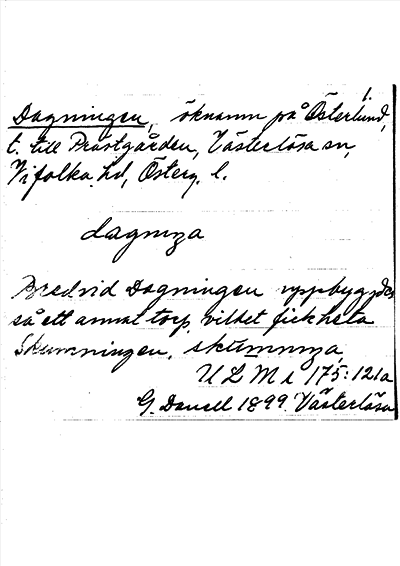 1.
Dagningen, öknamn på Österlund,
t. till Prästgården, Västerlösa sn,
Vifolka hd, Österg. l.
dagnıŋa
Bredvid Dagningen uppbyggdes
så ett annat torp, vilket fick heta
Skumningen, skumnıŋa,
ULMA 175:121a
G. Danell 1899. Västerlösa